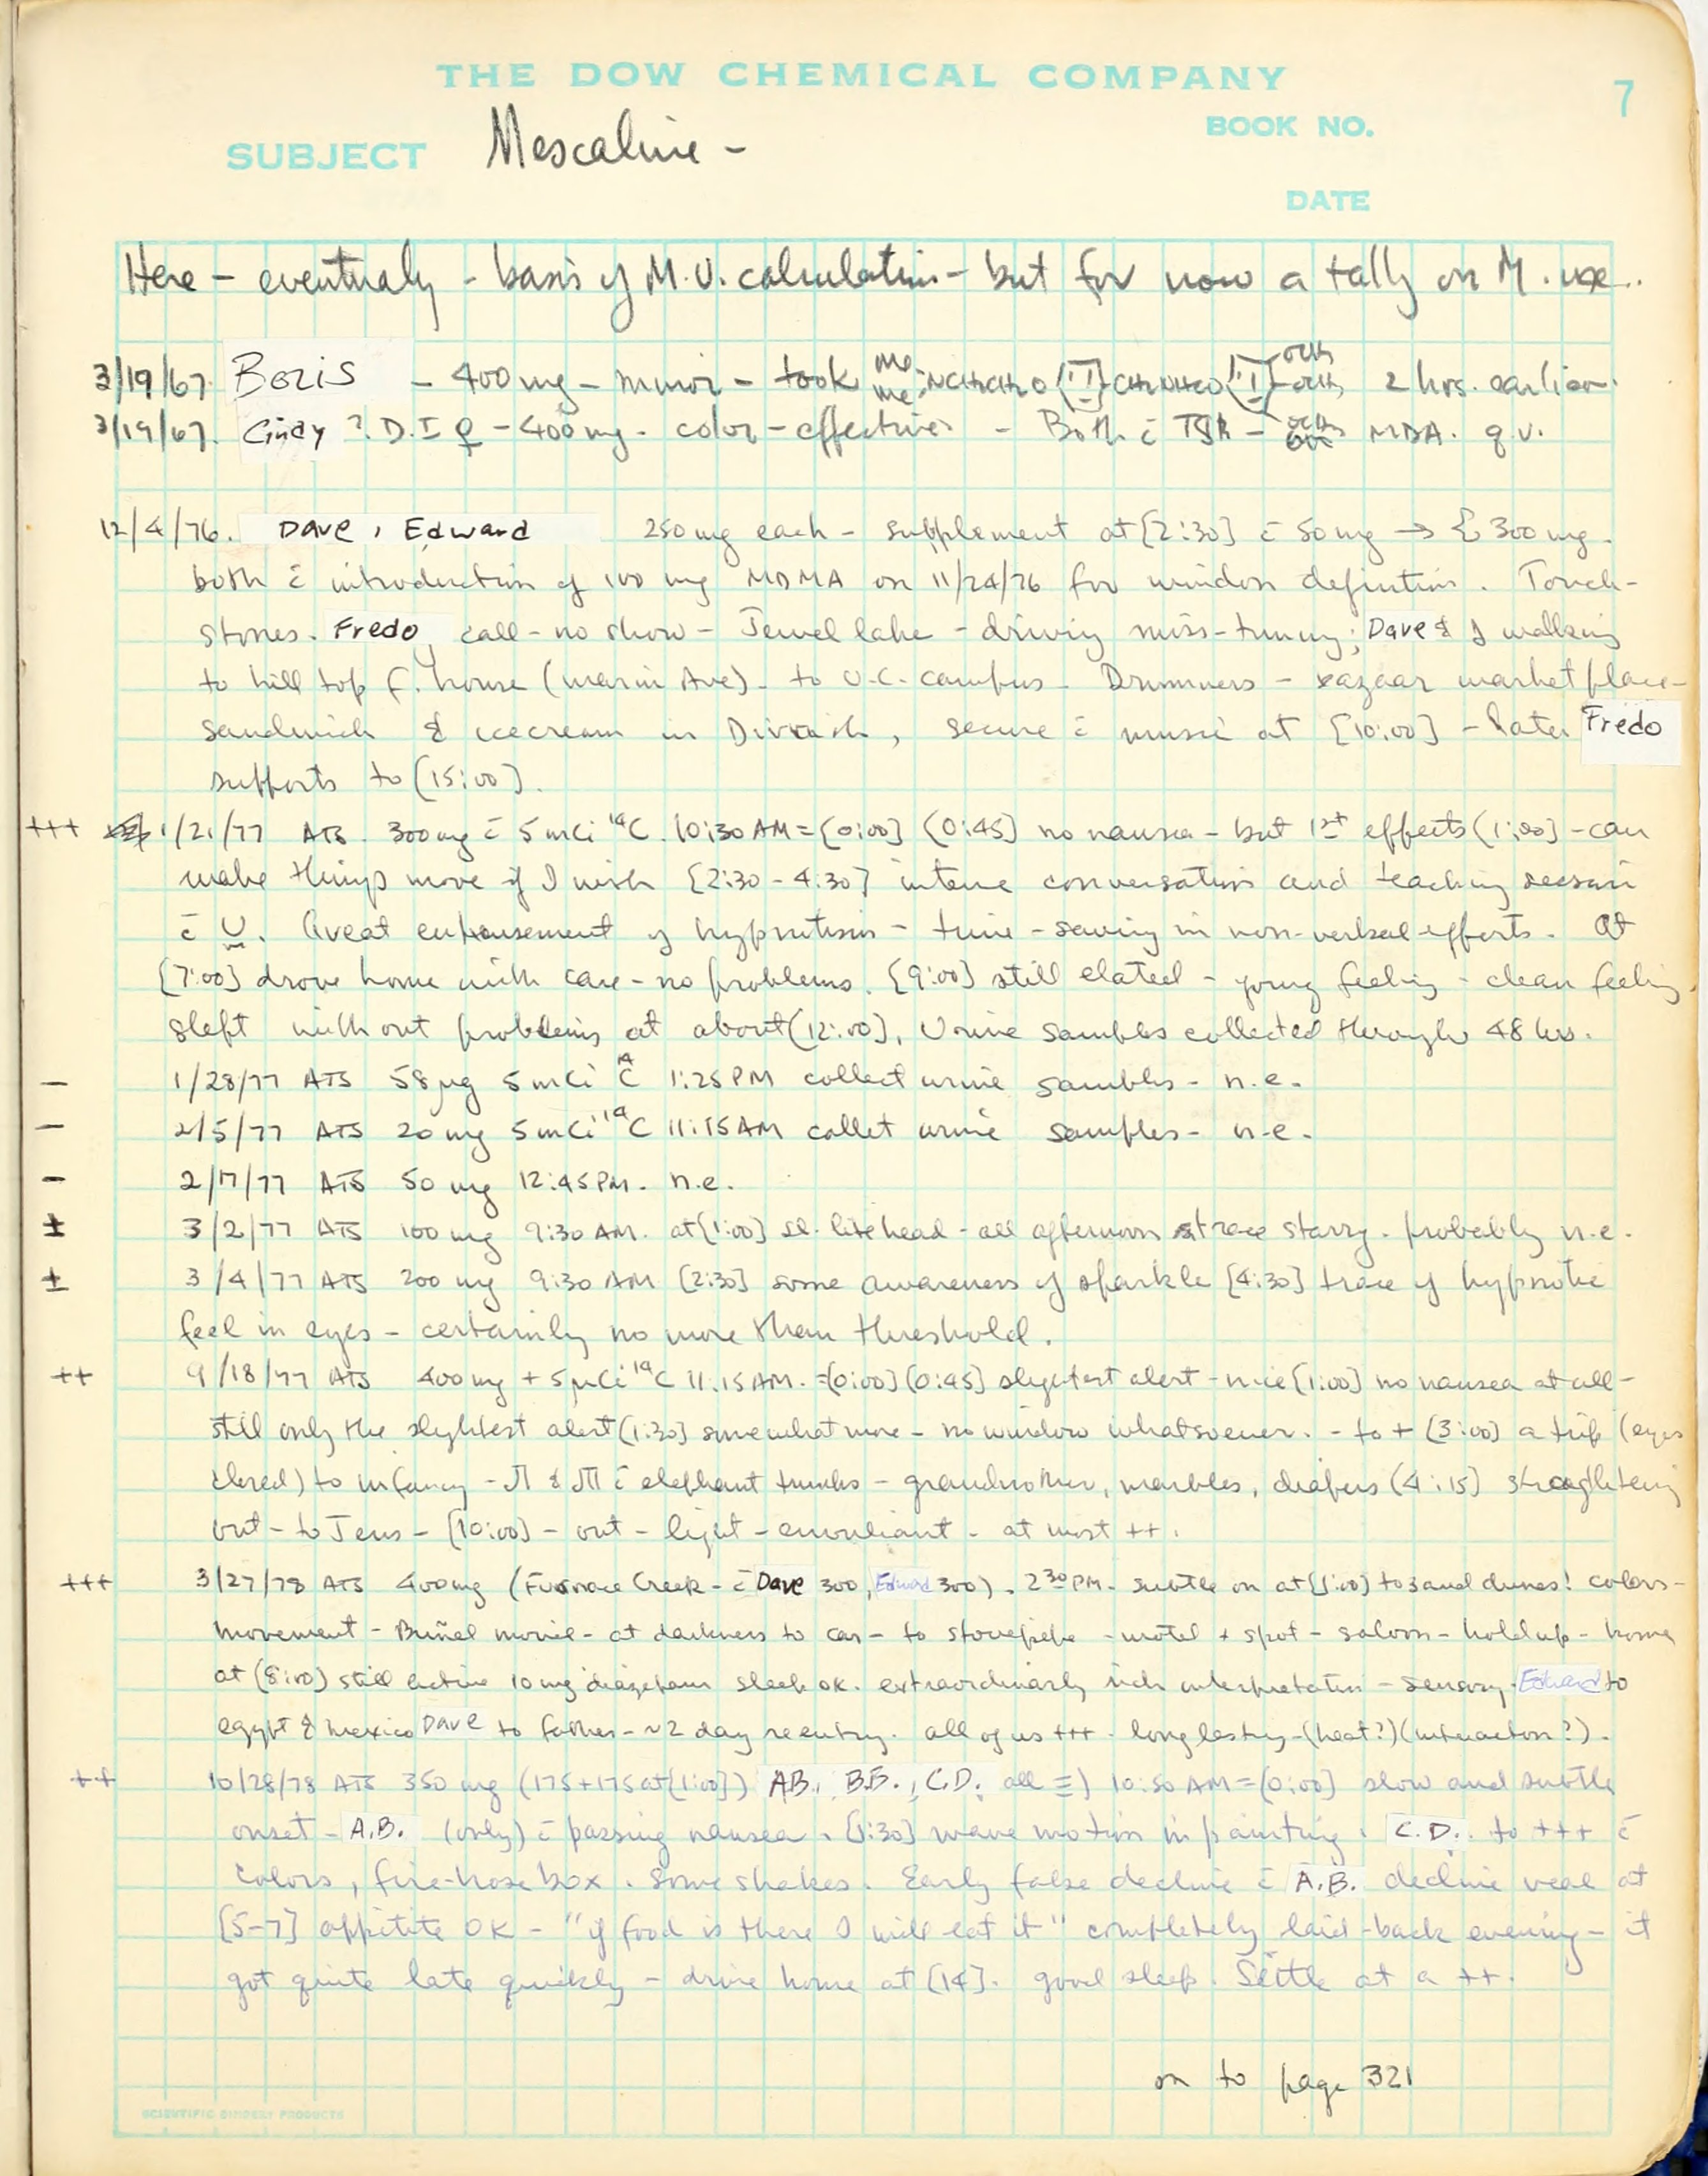 THE DOW CHEMICAL COMPANY
7
BOOK NO.
SUBJECT Mescaline -
DATE
Here - eventualy - basis of M.U. calculation - but for now a tally on M. use..
3/19/67. Boris - 400 mg - minor - took 2 hrs. earlier.
3/19/67. Cindy ?. D.I ♀ - 400 mg - color - effective - Both c̄ MDA. q.v.
12/4/76. Dave, Edward 250 mg each - supplement at [2:30] c̄ 50 mg → Σ 300 mg.
both c̄ introduction of 100 mg MDMA on 11/24/76 for window definition. Touch-
stones. Fredo call - no show - Jewel lake - driving miss-tuning; Dave & I walking
to hill top f. house (Marin Ave) - to U.C. campus - Drummers - market place -
sandwich & icecream in , secure c̄ music at [10:00] - later Fredo
supports to [15:00].
+++ 1/21/77 ATS. 300 mg c̄ 5 mCi ¹⁴C. 10:30 AM = [0:00] [0:45] no nausea - but 1st effects [1:00] - can
make things move if I wish [2:30 - 4:30] intense conversation and teaching session
c̄ U. Great enhansement of hypnotism - time - saving in non-verbal efforts. At
[7:00] drove home with care - no problems. [9:00] still elated - young feeling - clean feeling
slept without problems at about [12:00]. Urine samples collected through 48 hrs.
- 1/28/77 ATS 58 µg 5 mCi ¹⁴C 1:25 PM collect urine samples - n.e.
- 2/5/77 ATS 20 mg 5 mCi ¹⁴C 11:15 AM collet urine samples - n.e.
- 2/17/77 ATS 50 mg 12:45 PM. n.e.
± 3/2/77 ATS 100 mg 9:30 AM. at [1:00] sl. litehead - all afternoon trace starry. probably n.e.
± 3/4/77 ATS 200 mg 9:30 AM [2:30] some awareness of sparkle [4:30] trace of hypnotic
feel in eyes - certainly no more than threshold.
++ 9/18/77 ATS 400 mg + 5 µCi ¹⁴C 11:15 AM. = [0:00] [0:45] slightest alert - nice [1:00] no nausea at all -
still only the slightest alert [1:30] somewhat more - no window whatsoever. - to + [3:00] a trip (eyes
closed) to infancy - & c̄ elephant trunks - grandmother, marbles, diapers [4:15] straghtening
out - to Jens - [10:00] - out - light - - at most ++.
+++ 3/27/78 ATS 400 mg (Furnace Creek - c̄ Dave 300, Edward 300). 2³⁰ PM. subtle on at [1:00] to sand dunes! colors -
movement - Buñel movie - at darkness to car - to stovepipe - motel + spot - saloon - holdup - home
at [8:00] still active 10 mg diazepam sleep OK. extraordinarily rich interpretation - sensory. Edward to
egypt & mexico Dave to father - ~2 day reentry. all of us +++. long lasting - (heat?) (interaction?).
++ 10/28/78 ATS 350 mg (175 + 175 at [1:00]) A.B., B.B., C.D. all ≡) 10:50 AM = [0:00] slow and subtle
onset - A.B. (only) c̄ passing nausea. [1:30] wave motion in painting. C.D. to +++ c̄
colors, fire-hose box. Some shakes. Early false decline c̄ A.B. decline real at
[5-7] appitite OK - "if food is there I will eat it" completely laid-back evening - it
got quite late quickly - drive home at [14]. good sleep. Settle at a ++.
on to page 321
SCIENTIFIC BINDERY PRODUCTS